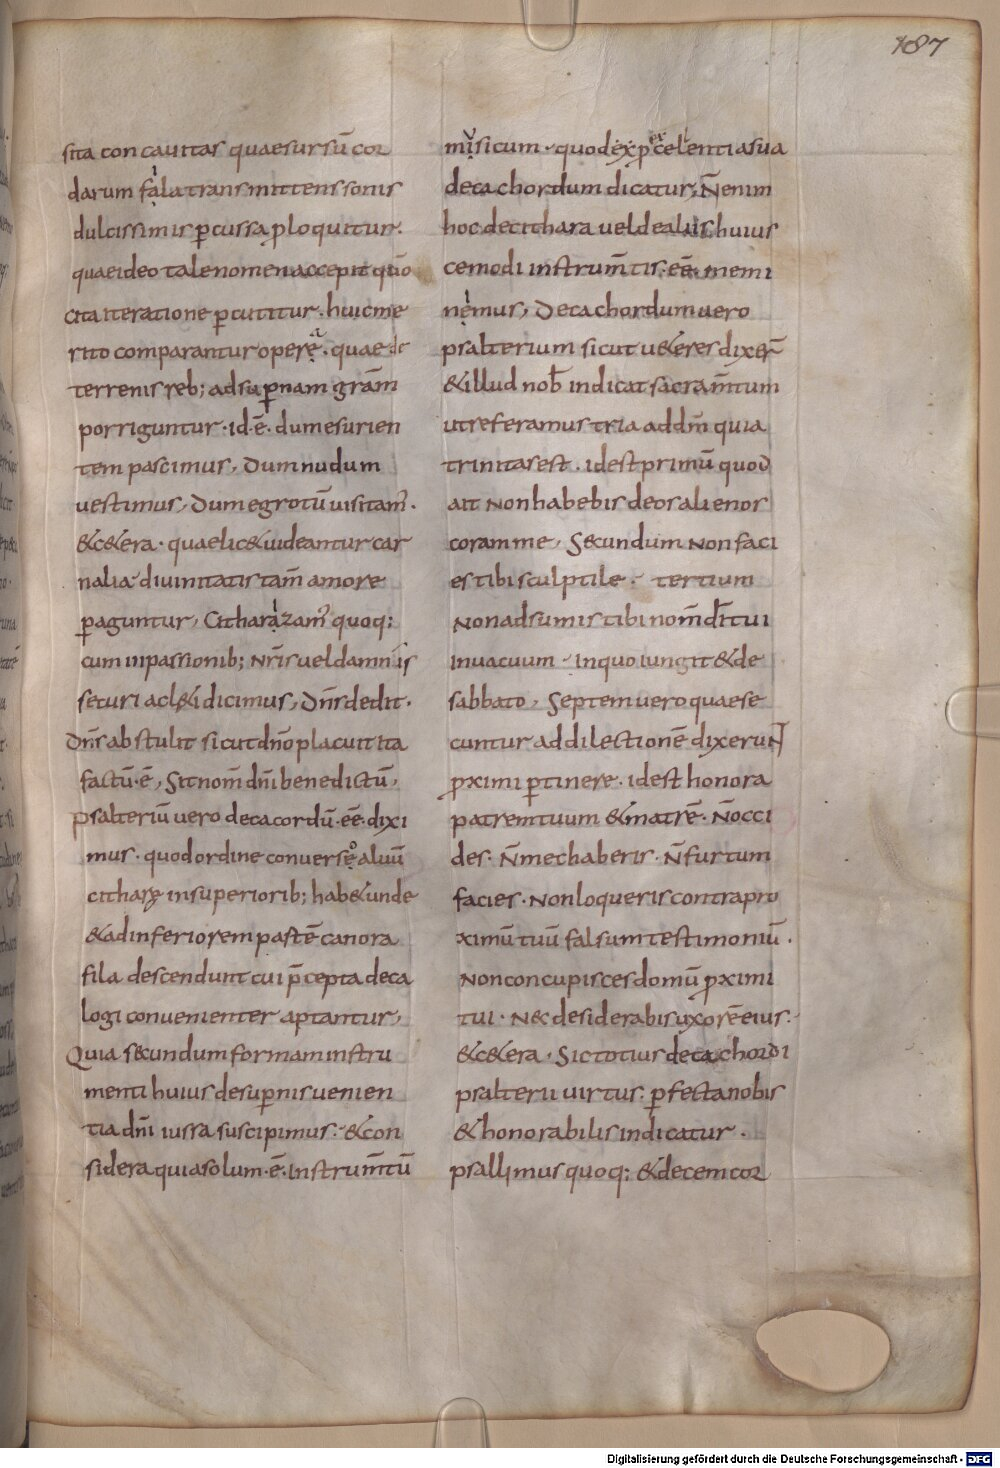 187
sita concauitas quaesursū cor
darum fala transmittens sonis
dulcissimis ꝑcussa ploquitur.
quaeideo tale nomen accepit quō
cita iteratione ꝑcutitur. huic me
rito comparantur operę. quae de
terrenis reb; adsuꝑnam grām
porriguntur. id.ē. dum esurien
tem pascimus, dum nudum
uestimus, dum egrotū uisitam'.
&c&era. quae lic& uideantur car
nalia diuinitatis tam̄ amore
ꝑaguntur, Citharizam' quoq;
cum inpassionib; nr̄is uel damnis
securi ac l&i dicimus, Dn̄s dedit.
Dn̄s abstulit sicut dn̄o placuit ita
factū.ē, Sit nom̄ dn̄i benedictū,
psalteriū uero decacordū. eē. dixi
mus. quod ordine conuerso aluū
citharę in superiorib; hab& unde
& ad inferiorem partē canora
fila descendunt cui p̄cepta deca
logi conuenienter aptantur,
Quia secundum formam instru
menti huius desuꝑnis uenien
tia dn̄i iussa suscipimus. & con
sidera quia solum.ē. instrum̄tū
musicum. quod ex p̄cellentia sua
decachordum dicatur; N̄ enim
hoc de cithara uel de aliis huius
cemodi instrum̄tis. eē. memi
nimus, Decachordum uero
psalterium sicut u&eres dixer̄
& illud nob̄ indicat sacram̄tum
ut referamus tria ad dm̄ quia
trinitas est. id est primū quod
ait Non habebis deos alienos
coram me, Secundum Non faci
es tibi sculptile. tertium
Non adsumis tibi nom̄ dī tui
in uacuum. In quo iungit & de
sabbato, Septem uero quae se
cuntur ad dilectionē dixerunt
ꝓximi ꝑtinere. id est honora
patrem tuum & matrē. N̄ occi
des. N̄ mechaberis. N̄ furtum
facies. Non loqueris contra pro
ximū tuū falsum testimoniū.
Non concupisces domū ꝓximi
tui. Nec desiderabis uxorē eius.
&c&era. Sic totius decachordi
psalterii uirtus. ꝑfecta nobis
& honorabilis indicatur.
psallimus quoq; & decemcor
Digitalisierung gefördert durch die Deutsche Forschungsgemeinschaft - DFG